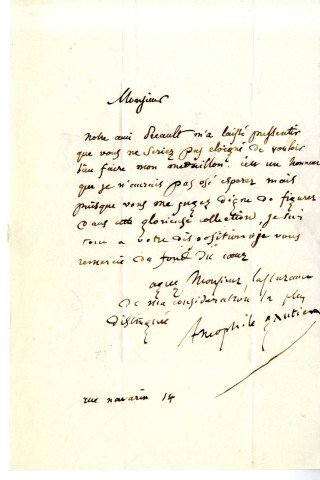 Monsieur
notre ami Préault m'a laissé pressentir
que vous ne seriez pas eloigné de vouloir
bien faire mon médaillon. c'est un honneur
que je n'aurais pas osé esperer mais
puisque vous me jugez digne de figurer
dans cette glorieuse collection, je suis
tout a votre disposition et je vous
remercie du fond du cœur
agreez Monsieur l'assurance
de ma consideration la plus
distinguée
Theophile Gautier
rue navarin 14